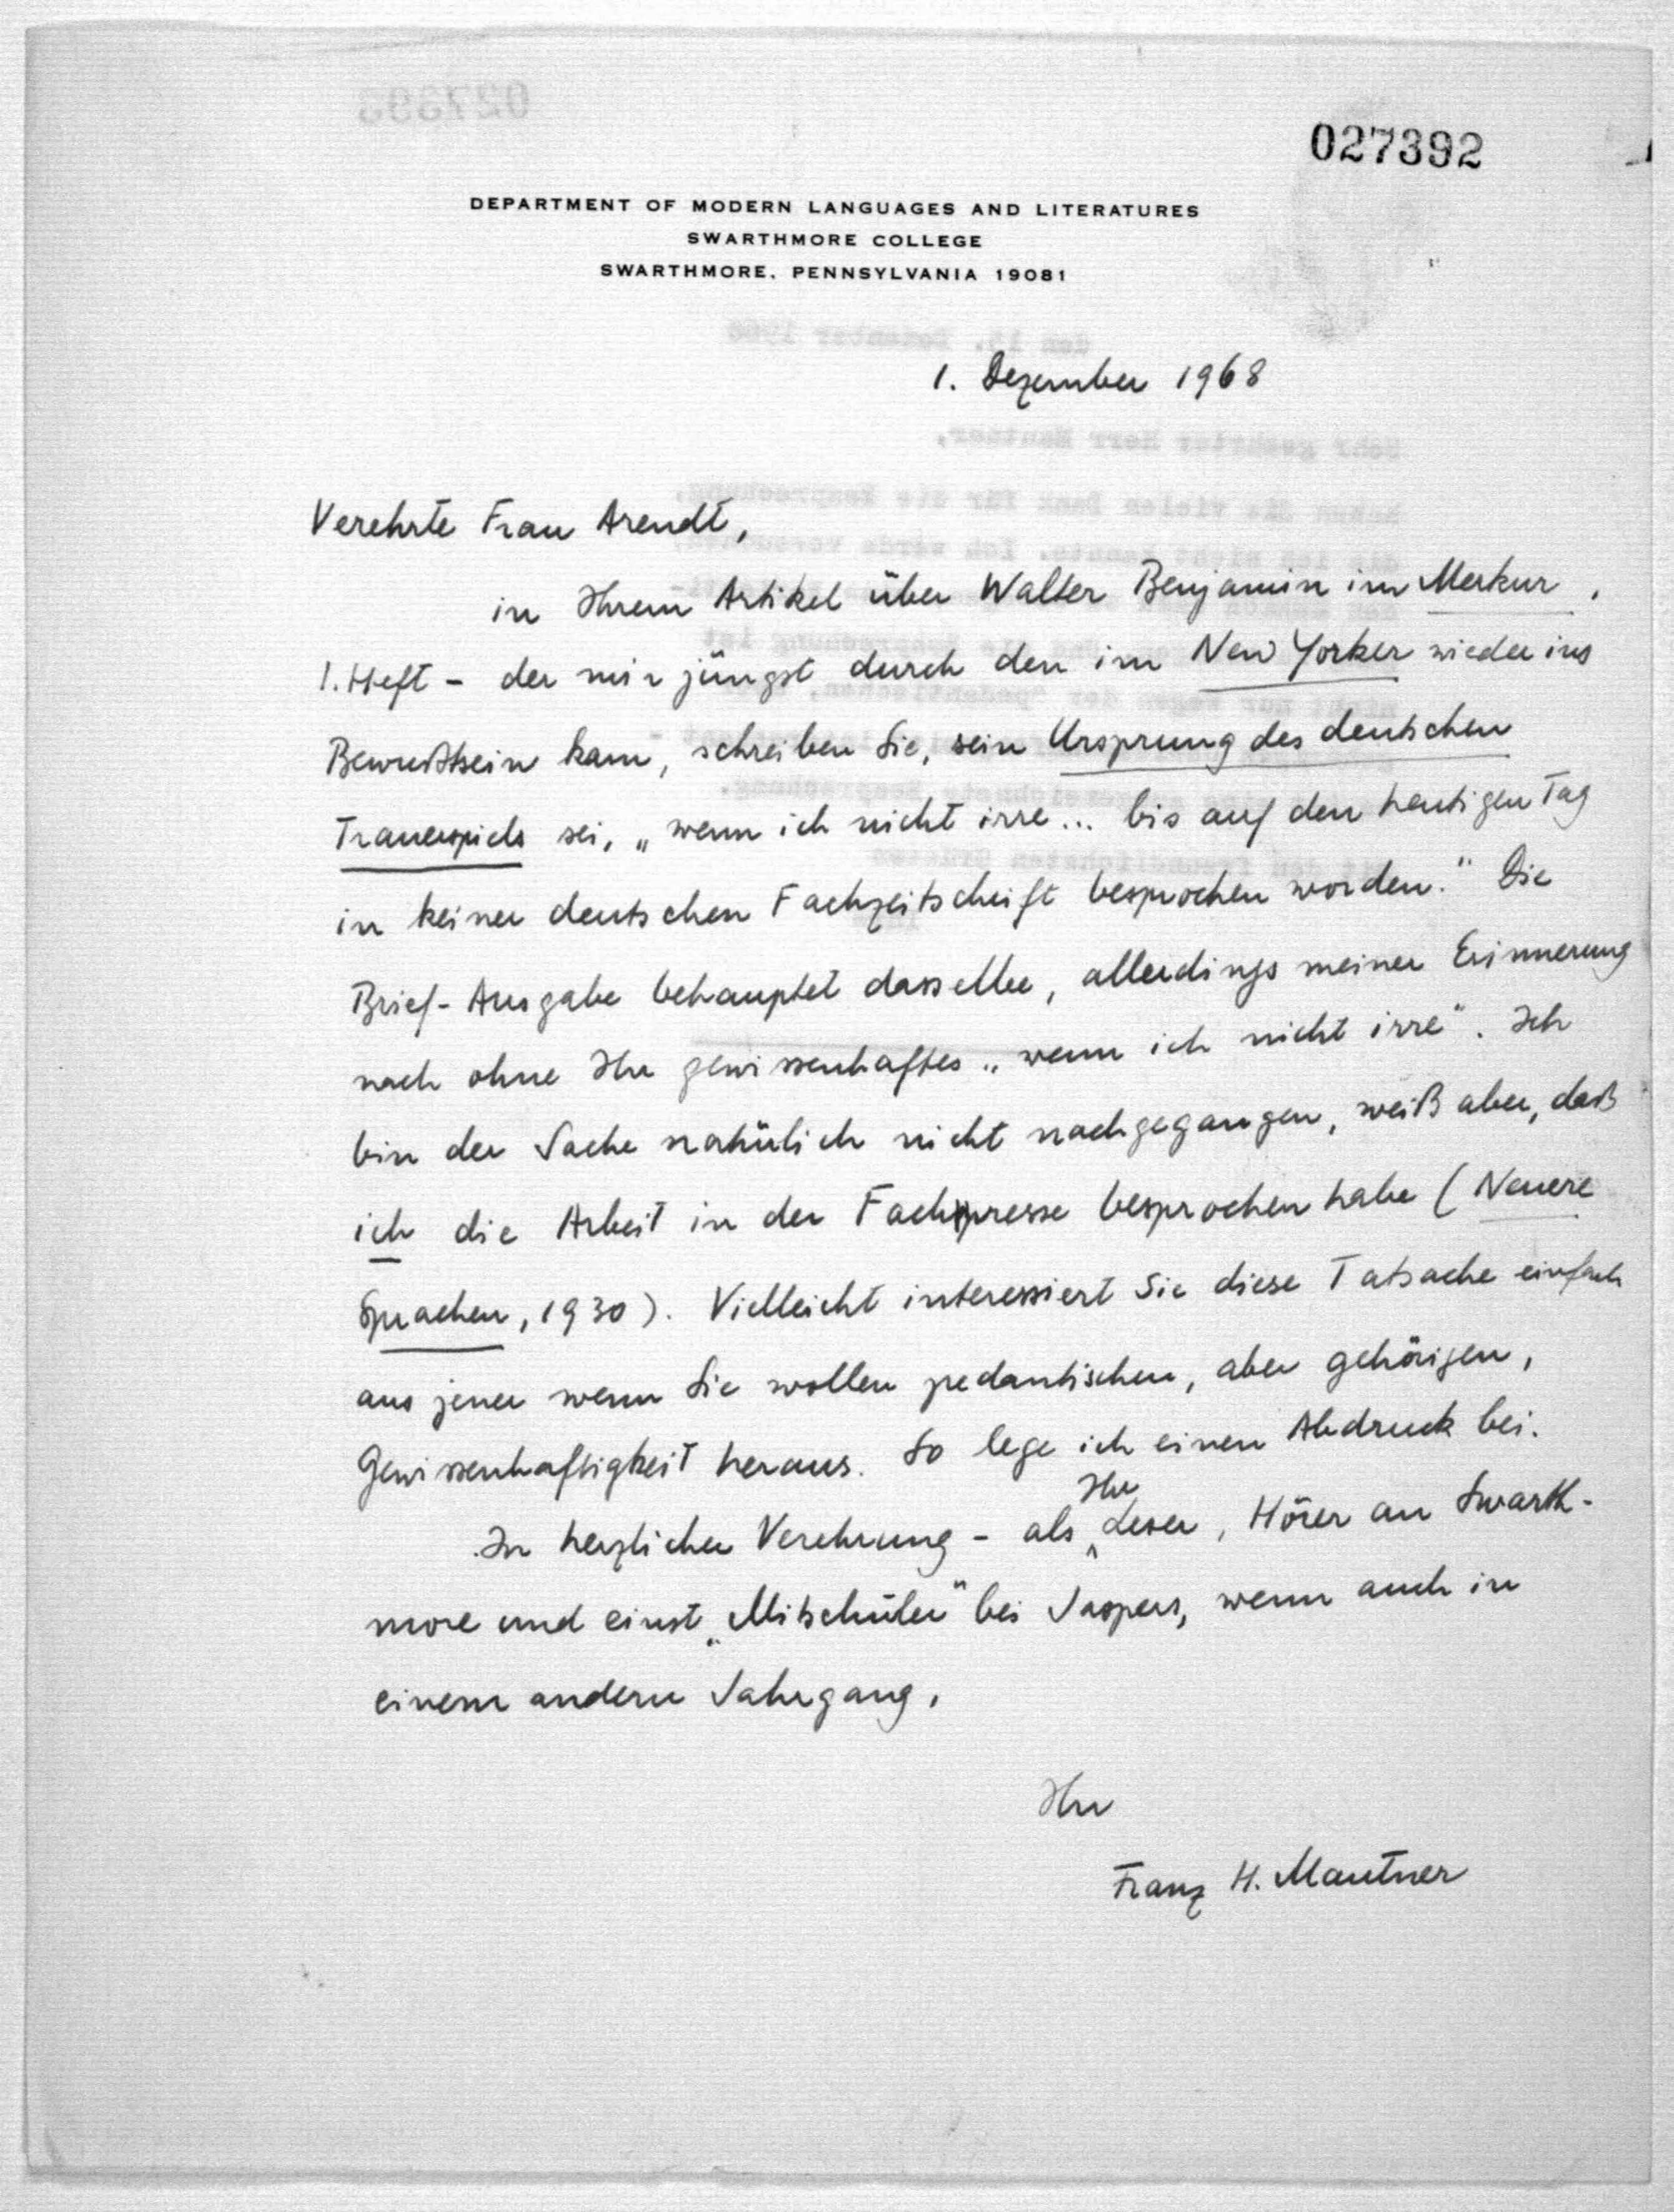 027392
DEPARTMENT OF MODERN LANGUAGES AND LITERATURES
SWARTHMORE COLLEGE
SWARTHMORE, PENNSYLVANIA 19081
1. Dezember 1968
Verehrte Frau Arendt,
in Ihrem Artikel über Walter Benjamin im Merkur,
1. Heft - der mir jüngst durch den im New Yorker wieder ins
Bewußtsein kam, schreiben Sie, sein Ursprung des deutschen
Trauerspiels sei, „wenn ich nicht irre... bis auf den heutigen Tag
in keiner deutschen Fachzeitschrift besprochen worden." Die
Brief-Ausgabe behauptet dasselbe, allerdings meiner Erinnerung
nach ohne Ihr gewissenhaftes „wenn ich nicht irre". Ich
bin der Sache natürlich nicht nachgegangen, weiß aber, daß
ich die Arbeit in der Fachpresse besprochen habe (Neuere
Sprachen, 1930). Vielleicht interessiert Sie diese Tatsache einfach
aus jener wenn Sie wollen pedantischen, aber gehörigen,
Gewissenhaftigkeit heraus. So lege ich einen Abdruck bei.
In herzlicher Verehrung - als Ihr Leser, Hörer an Swarth-
more und einst „Mitschüler" bei Jaspers, wenn auch in
einem andern Jahrgang,
Ihr
Franz H. Mautner